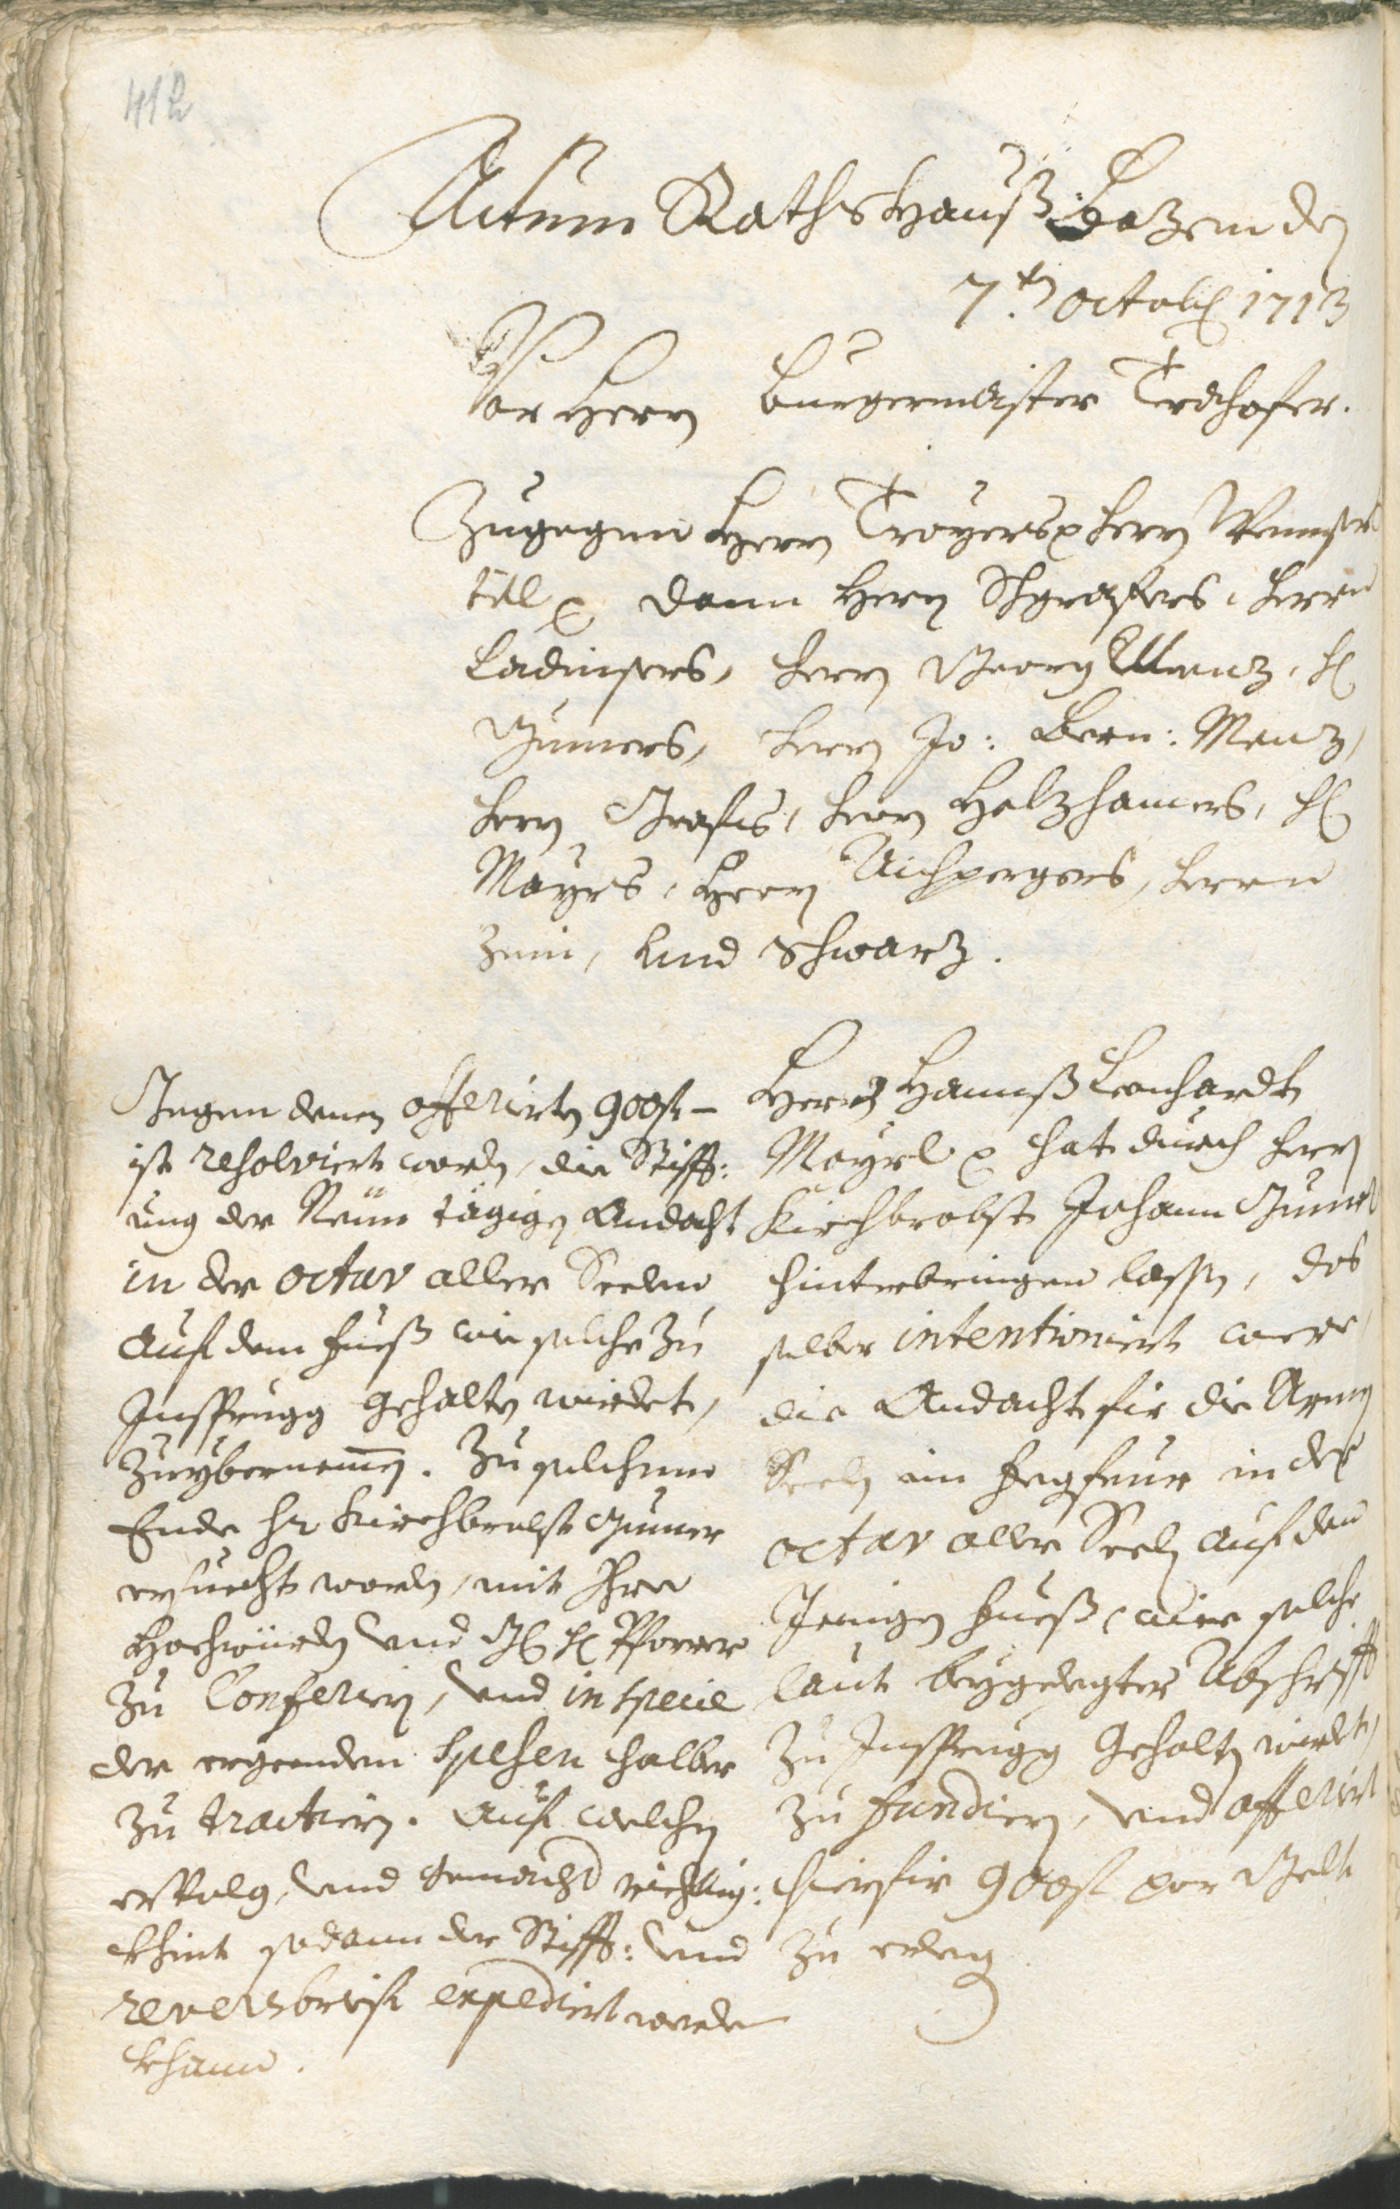 412
Actum Rathshauß Bozen den
7.ten octob: 1713
Vor Herrn Burgermaister Trehofer.
Zugegen Herrn Troyers p Herrn Wenser
titl p dann Herrn Schgrafers, herrn
Ladinsers, herrn Georg Menz, H:
Gumers, herrn Jo: Bern: Menz,
herrn Grafts, herrn Holzhamers, H:
Mayrs, Herrn Aichpergers, herrn
Zeni, und Schwarz.
Herrn Hannß Leonhardt
Mayrl p hat durch herrn
Kirchbrobst Johann Gumer
hinterbringen lassen, das
selber intentioniert were,
die Andacht fir die Armen
Seelen im Fegfeur in der
octav aller Seelen auf den
Jenigen fueß, wie solche
laut beygelegter Abschrifft
zu Insprugg gehalten wirdet,
zu fundiern, und offeriert
hierfir 900 fl par Gelt
zu erleg
Gegen denen offerirten 900 fl –
ist resolviert worden, die Stifft:
ung der Neun tägigen Andacht
in der octav aller Seelen
auf dem fueß wie solche zu
Insprugg gehalten wirdet,
zuybernemen. Zu solchem
Ende Hr Kirchbrobst Gumer
ersuecht worden, mit Ihro
Hochwürden und G: H: Pfarrer
zu Conferiern, und in specie
der ergeenden Spesen halber
zu tractiern. Auf welchen
erfolg, und gemacht richtig:
kheit sodann der Stifft: und
reversbrief expediert werden
khann.